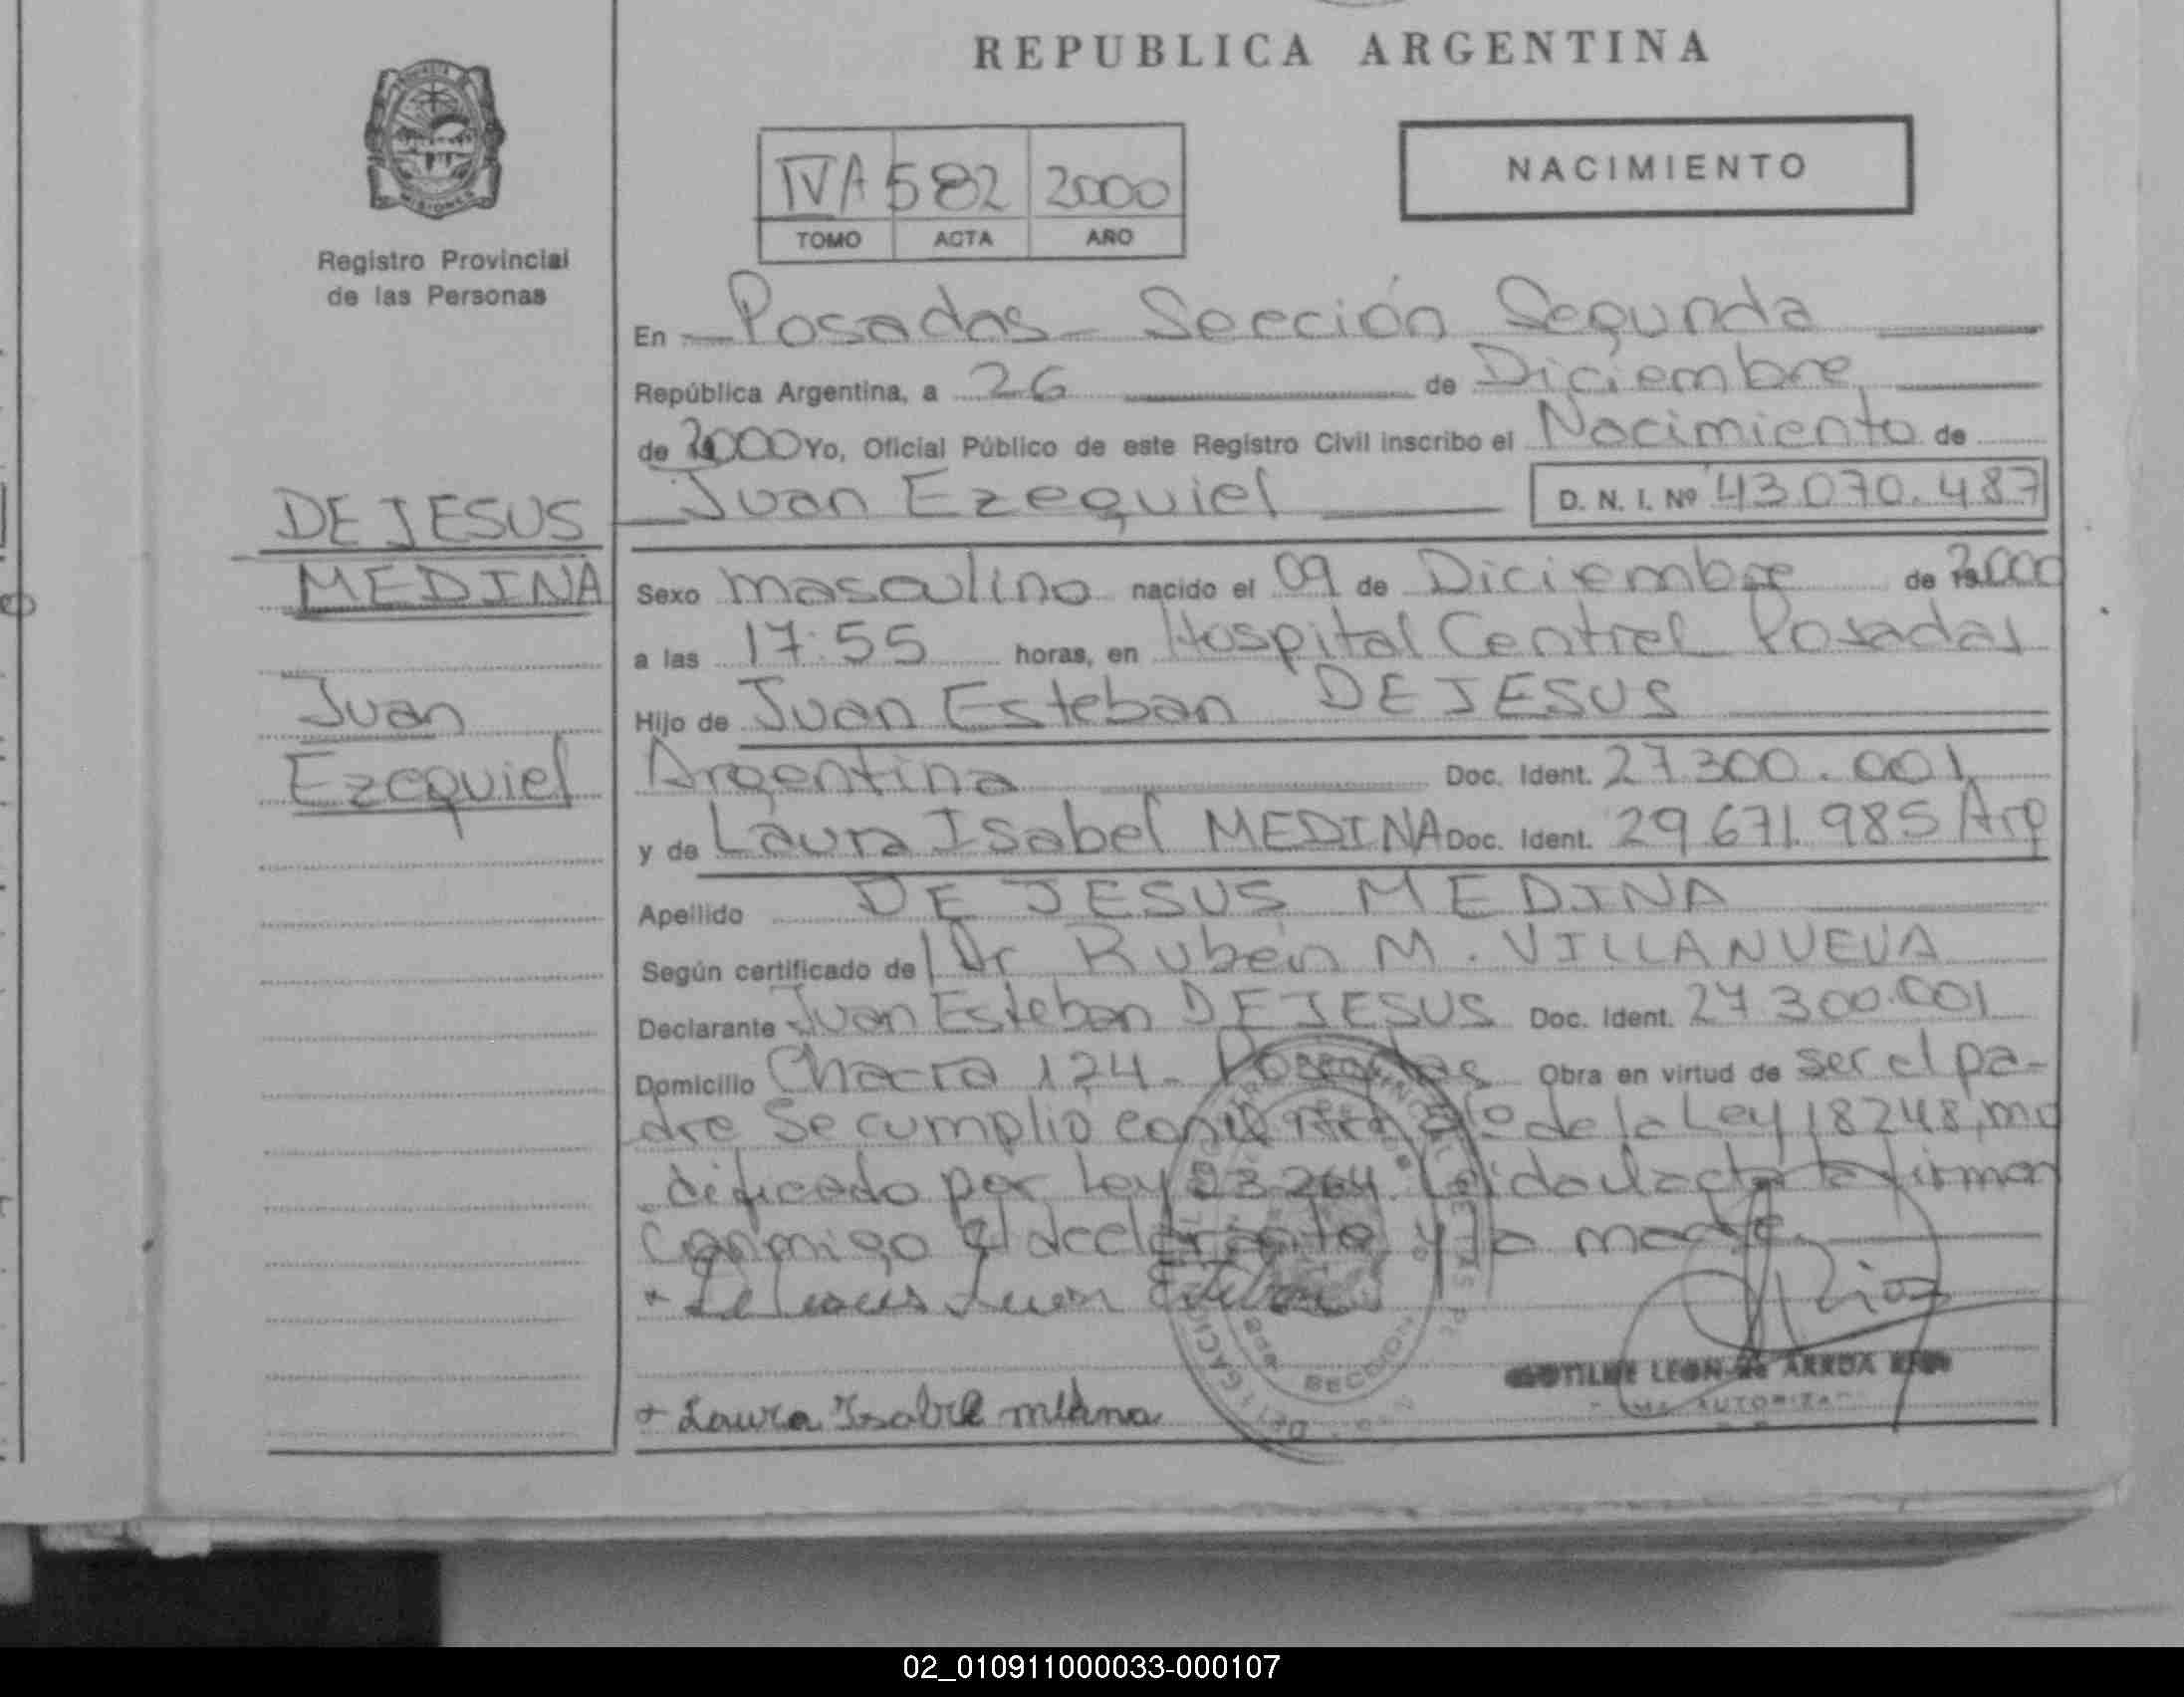 REPUBLICA ARGENTINA
NACIMIENTO
IVA 582 2000
TOMO ACTA AÑO
MISIONES
Registro Provincial
de las Personas
En Posadas - Sección Segunda
República Argentina, a 26 de Diciembre
de 2000 Yo, Oficial Público de este Registro Civil inscribo el Nacimiento de
Juan Ezequiel D. N. I. Nº 43.070.487
DE JESUS
MEDINA
Juan
Ezequiel
Sexo masculino nacido el 09 de Diciembre de 2000
a las 17:55 horas, en Hospital Central Posadas
Hijo de Juan Esteban DE JESUS
Argentina Doc. Ident. 27.300.001
y de Laura Isabel MEDINA Doc. Ident. 29.671.985 Arg
Apellido DE JESUS MEDINA
Según certificado de Dr Rubén M. VILLANUEVA
Declarante Juan Esteban DE JESUS Doc. Ident. 27.300.001
Domicilio Chacra 124 - Posadas Obra en virtud de ser el pa-
dre Se cumplio con el de la Ley 18248, mo
dificado por Ley 23.264. Leida el acta la firman
conmigo el declarante y la madre.
+ De Jesus Juan Esteban
Rios
LEON DE
AUTORIZA
SECCION
+ Laura Isabel
02_010911000033-000107